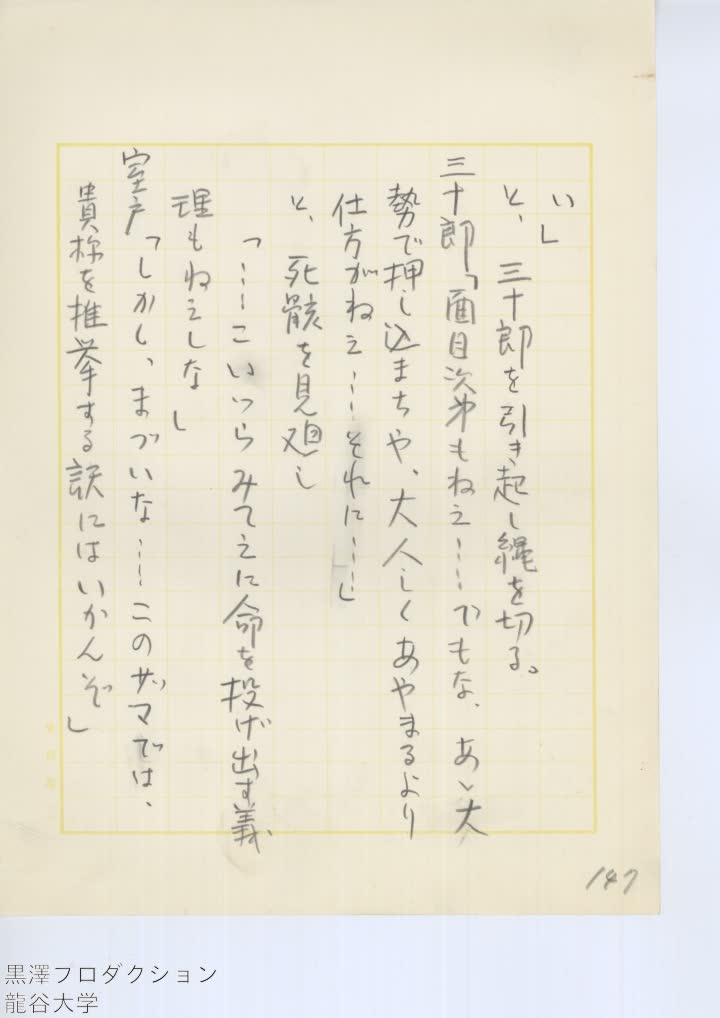 い」
と、三十郎を引き起し縄を切る。
三十郎「面目次第もねえ……でもな、あゝ大
勢で押し込まちゃ、大人しくあやまるより
仕方がねえ……それに……」
と、死骸を見廻し
「……こいつらみてえに命を投げ出す義
理もねえしな」
室戸「しかし、まづいな……このザマでは、
貴様を推挙する訳にはいかんぞ」
147
黒澤プロダクション
龍谷大学